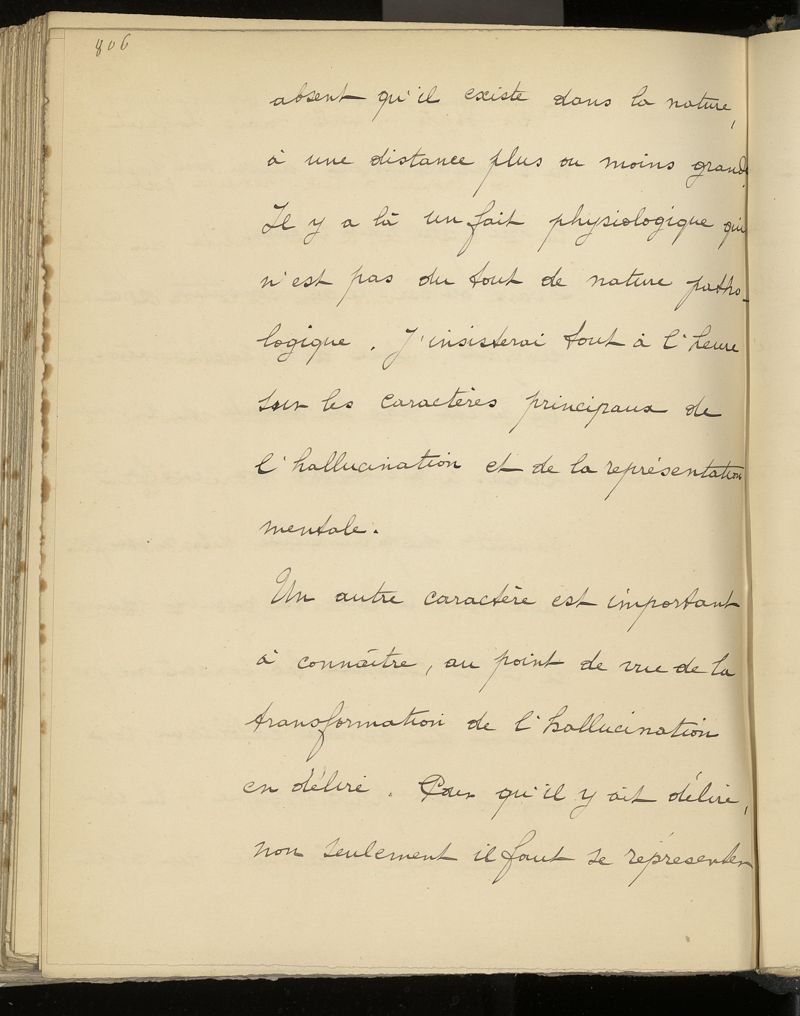 806
absent qu'il existe dans la nature,
à une distance plus ou moins grande.
Il y a là un fait physiologique qui
n'est pas du tout de nature patho-
logique. J'insisterai tout à l'heure
sur les caractères principaux de
l'hallucination et de la représentation
mentale.
Un autre caractère est important
à connaître, au point de vue de la
transformation de l'hallucination
en délire. Pour qu'il y ait délire,
non seulement il faut se représenter